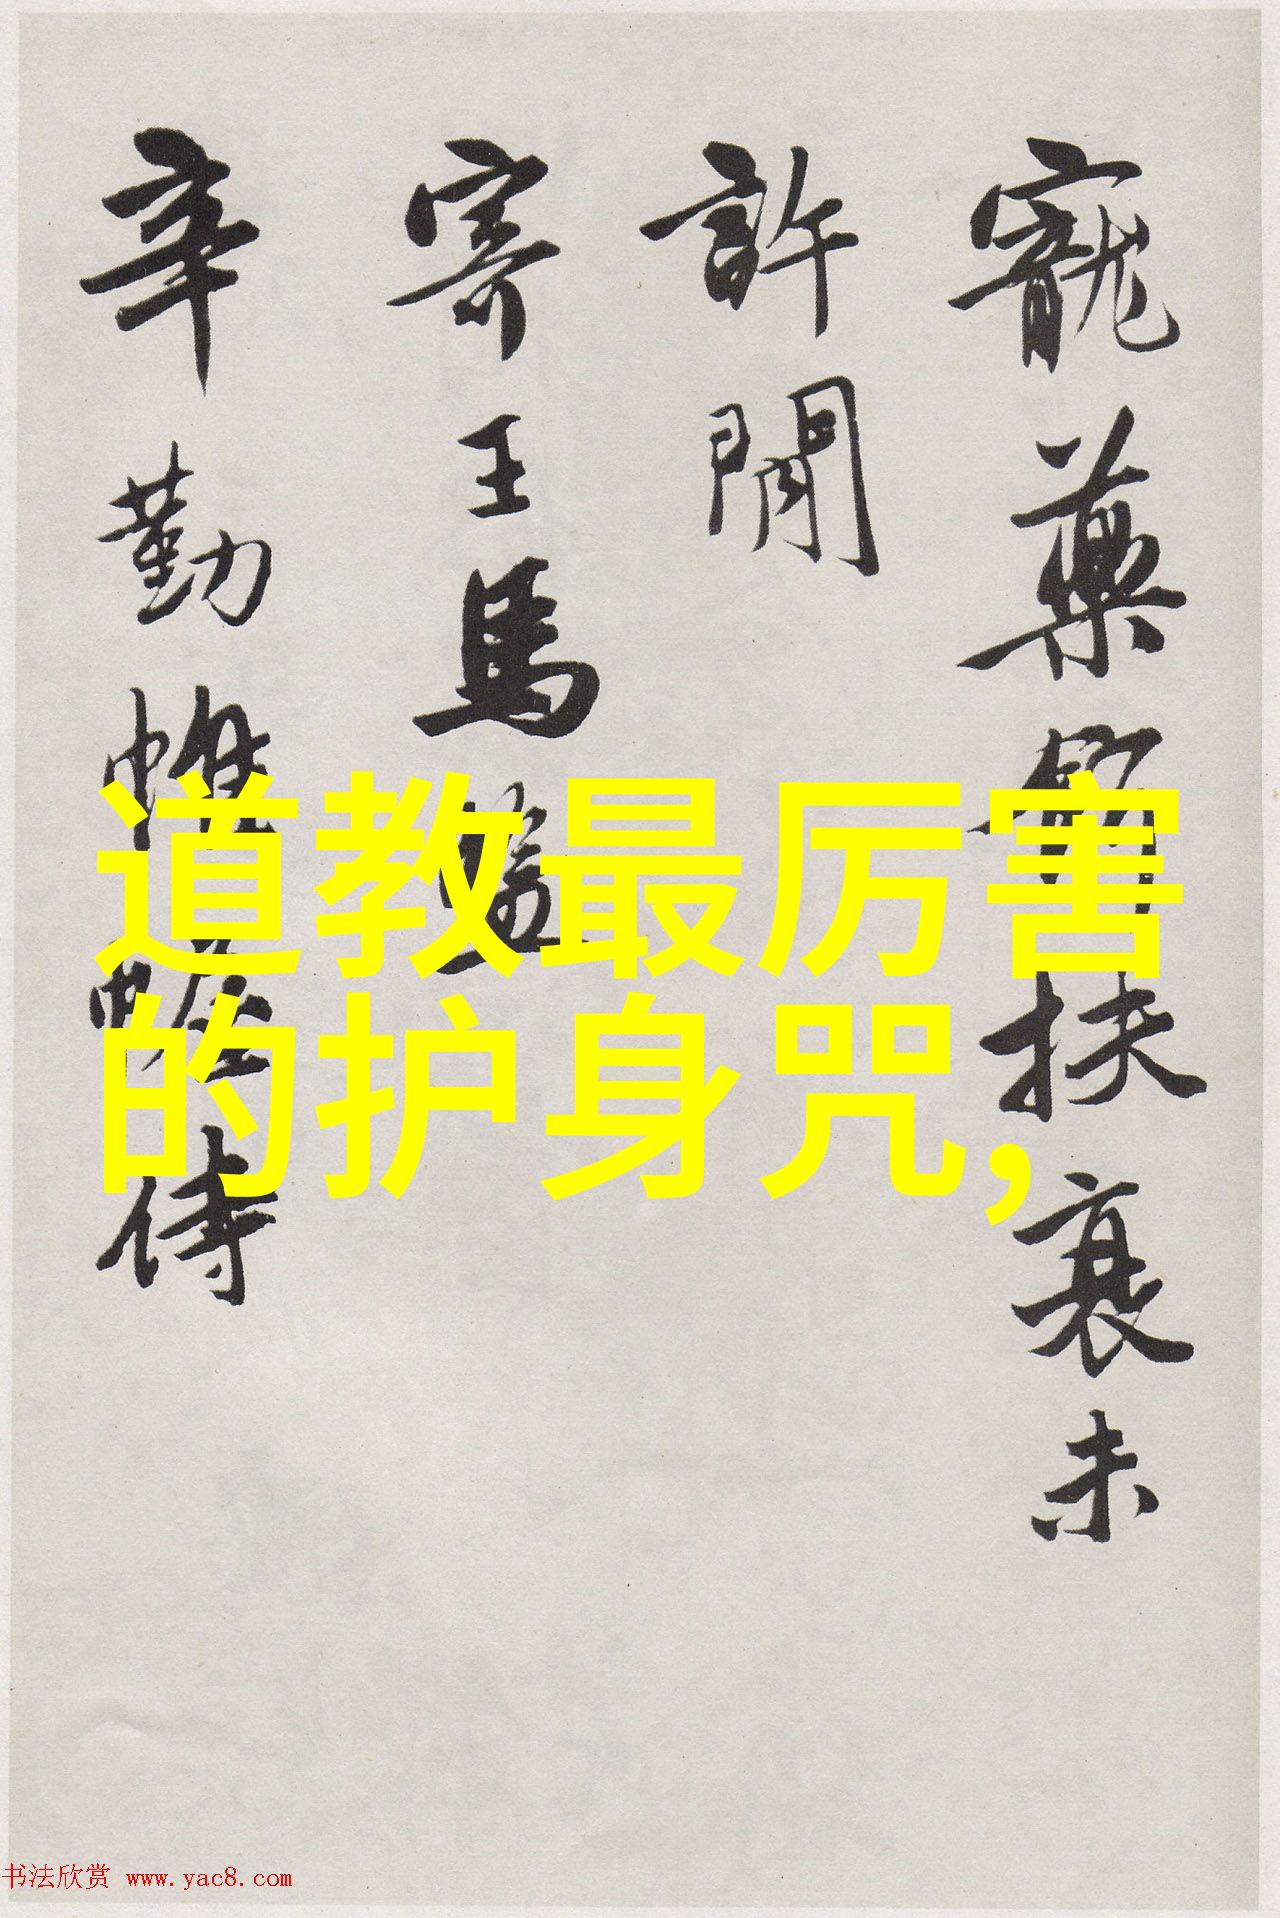 寵藥扶衰未
許閒
寄王馬
辛勤帷幄侍
道教最厉害
的护身咒,
书法欣赏 www.yac8.com